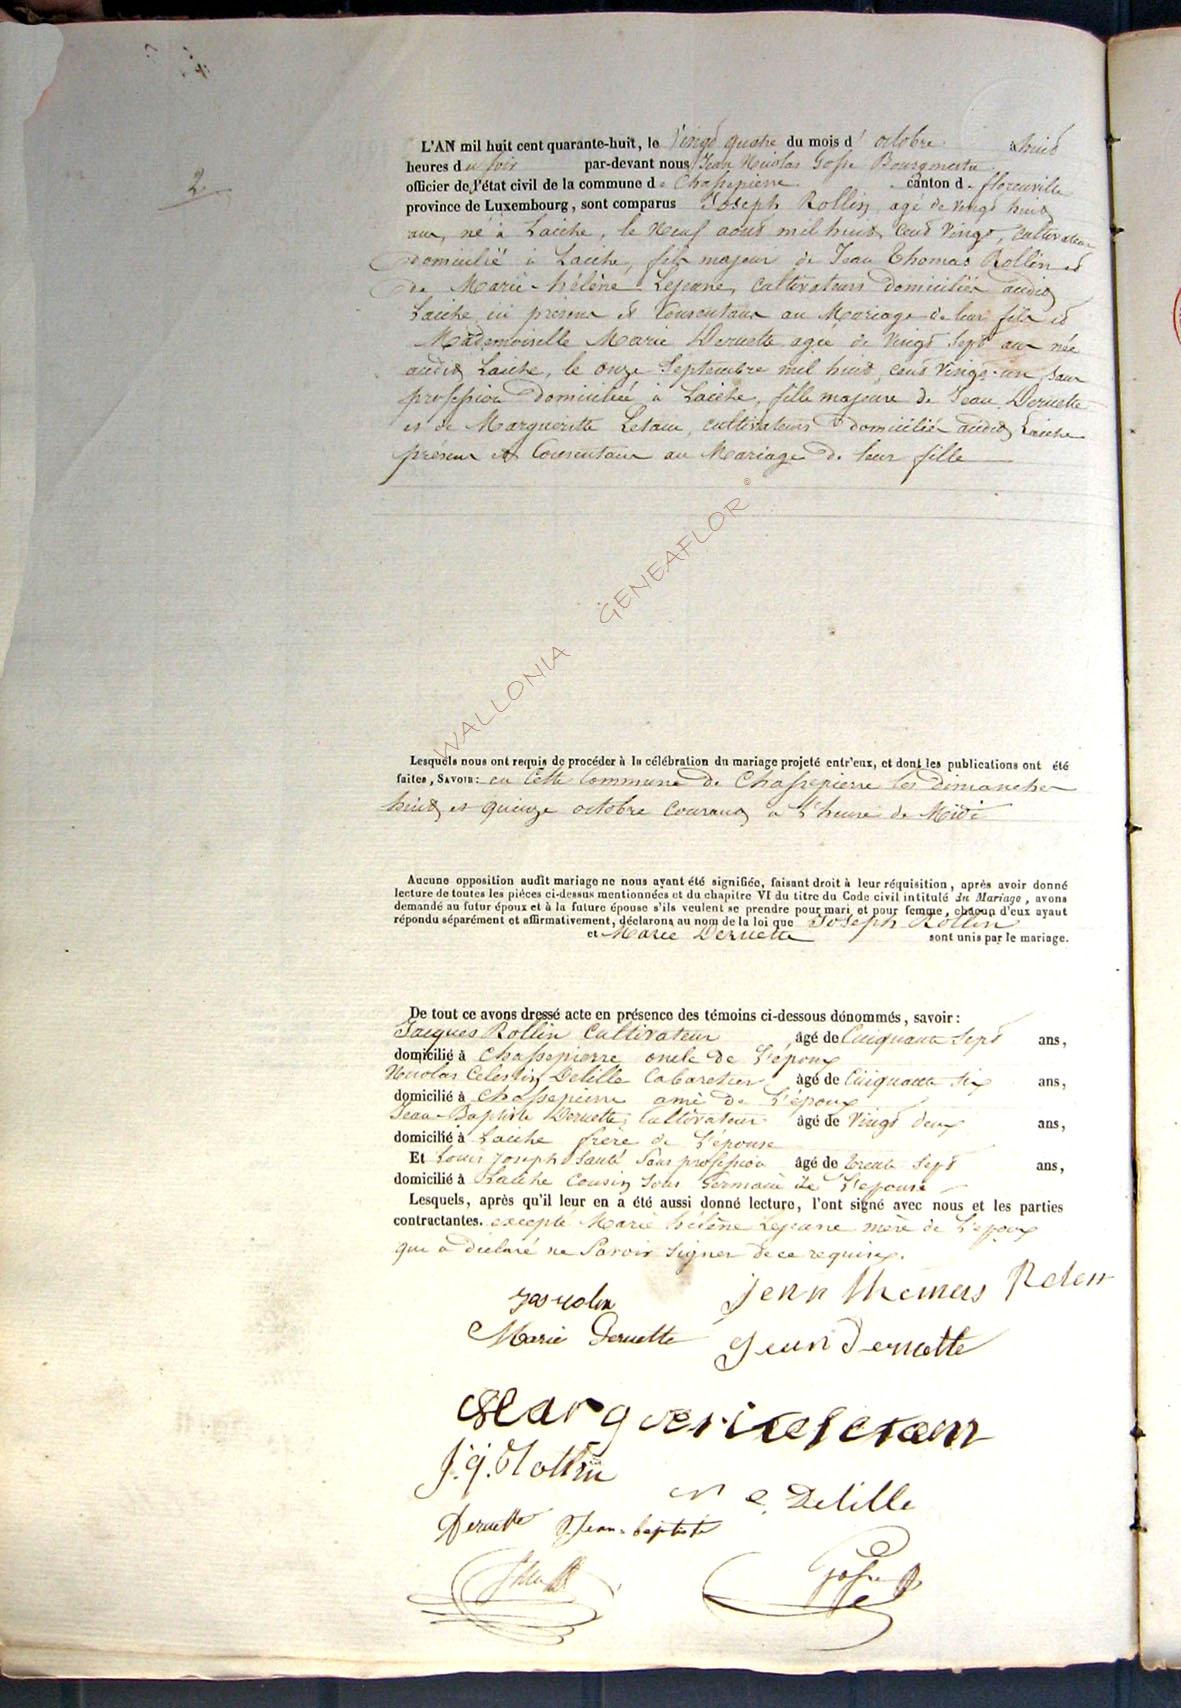 2
L'AN mil huit cent quarante-huit, le Vingt quatre du mois d' octobre à huit
heures du soir par-devant nous Jean Nicolas Gosse Bourgmestre
officier de l'état civil de la commune de Chassepierre canton de florenville
province de Luxembourg, sont comparus Joseph Rollin, agé de vingt huit
ans, né à Laiche, le Neuf aout mil huit Cent Vingt, Cultivateur
domicilié à Laiche, fils majeur de Jean Thomas Rollin et
de Marie-hélène Lejeune, Cultivateurs domiciliés audit
Laiche ici présens et Consentans au Mariage de leur fils et
Mademoiselle Marie Deruette agée de Vingt Sept ans née
audit Laiche, le onze Septembre mil huit Cent Vingt-un, Sans
profession domiciliée à Laiche, fille majeure de Jean Deruette
et de Margueritte Lesaux, cultivateurs domiciliés audit Laiche
présens et Consentans au Mariage de leur fille
WALLONIA GENEAFLOR ©
Lesquels nous ont requis de procéder à la célébration du mariage projeté entr'eux, et dont les publications ont été
faites, SAVOIR: en Cette Commune de Chassepierre les dimanches
huit et quinze octobre Courant à l'heure de Midi
Aucune opposition audit mariage ne nous ayant été signifiée, faisant droit à leur réquisition, après avoir donné
lecture de toutes les pièces ci-dessus mentionnées et du chapitre VI du titre du Code civil intitulé du Mariage, avons
demandé au futur époux et à la future épouse s'ils veulent se prendre pour mari et pour femme, chacun d'eux ayant
répondu séparément et affirmativement, déclarons au nom de la loi que Joseph Rollin
et Marie Deruette sont unis par le mariage.
De tout ce avons dressé acte en présence des témoins ci-dessous dénommés, savoir:
Jacques Rollin Cultivateur âgé de Cinquante Sept ans,
domicilié à Chassepierre oncle de l'époux
Nicolas Celestin Delille Cabaretier âgé de Cinquante Six ans,
domicilié à Chassepierre ami de l'époux
Jean-Baptiste Deruette, Cultivateur âgé de Vingt deux ans,
domicilié à Laiche frère de l'épouse
Et Louis Joseph Santé Sans profession âgé de trente Sept ans,
domicilié à Laiche Cousin Sous Germain de l'épouse
Lesquels, après qu'il leur en a été aussi donné lecture, l'ont signé avec nous et les parties
contractantes. excepté Marie hélène Lejeune mère de l'époux
qui a déclaré ne Savoir Signer de ce requise.
Jos rolin Jean thomas Rolen
Marie Deruette Jean Deruette
J. j. Rollin
n c. Delille
Deruette Jean-baptiste
Gosse